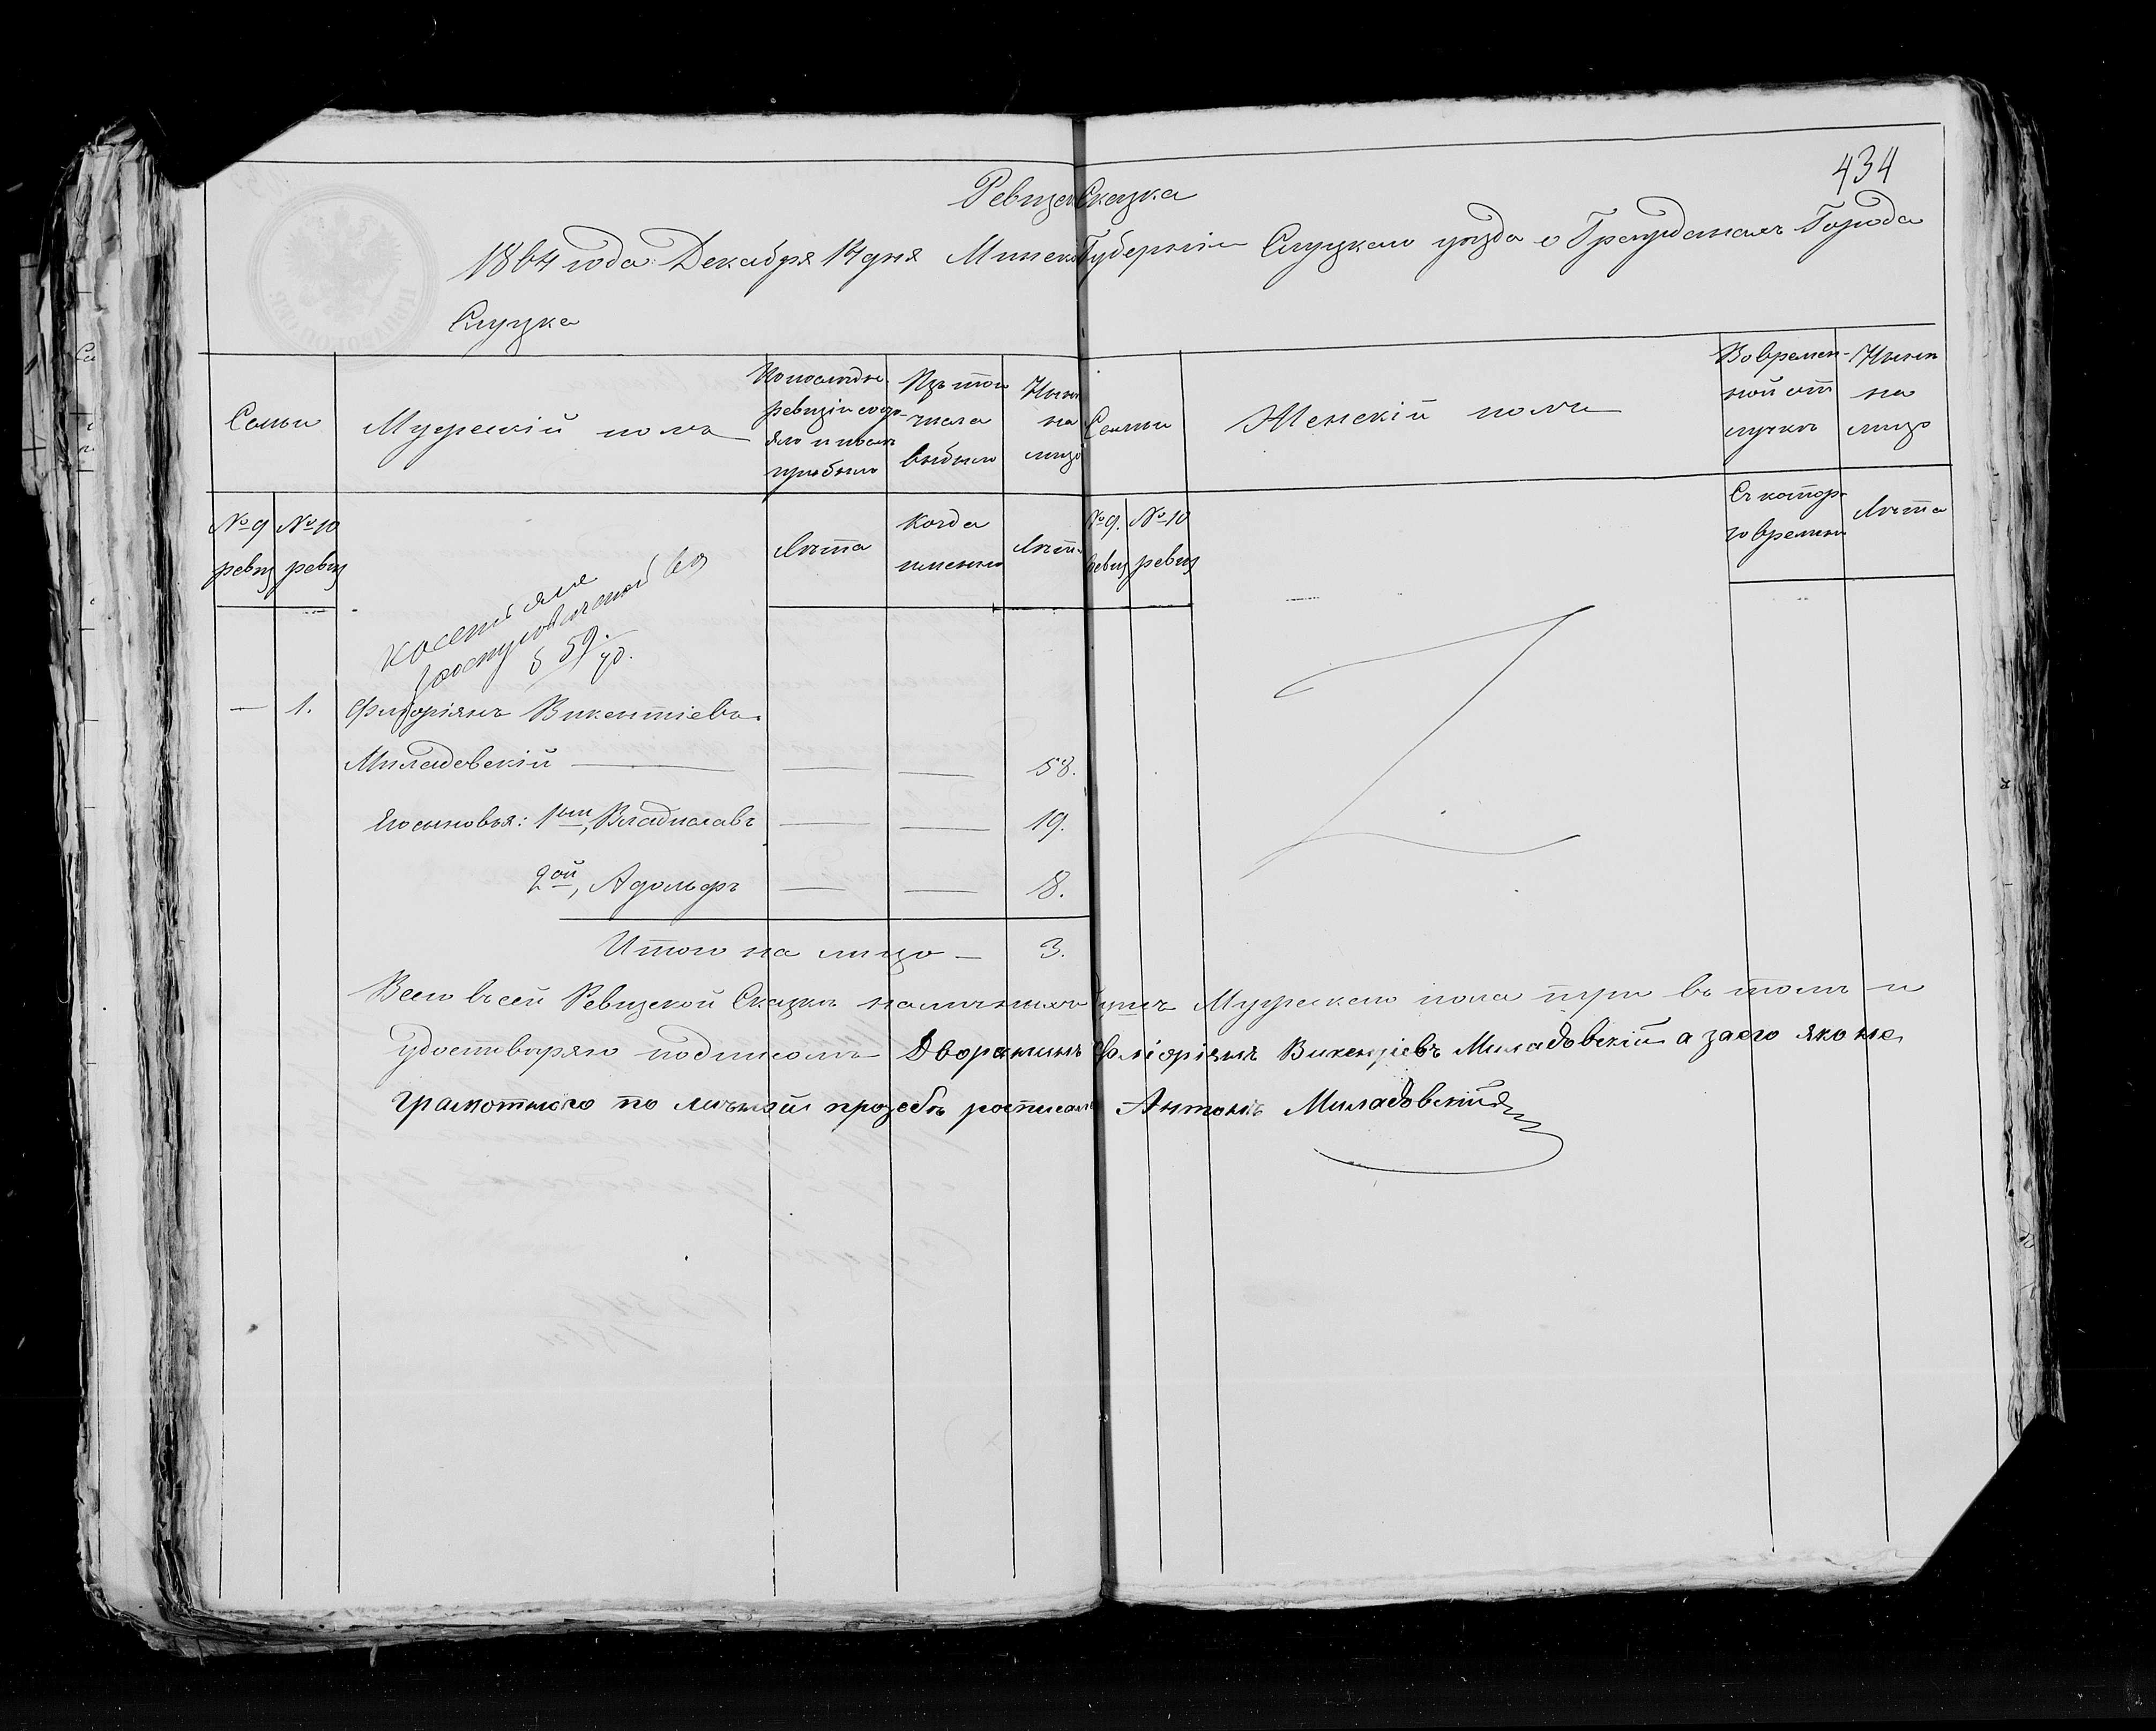 434
Ревизск Сказка
1864 года Декабря 14 дня Минской Губернии Слуцкаго уезда о Гражданахъ Города
Слуцка
Семьи
Мужеский полъ
По последн.
ревизіи состо-
яло и после
прибыло
Изъ того
числа
выбыло
Ныне
на
лицо
Семьи
Женскій полъ
Во времен-
ной от
лучке
Ныне
на
лицо
№ 9
ревиз
№ 10
ревиз
Лета
Когда
именно
Лета
№ 9.
ревиз
№ 10
ревиз
Съ котора-
го времени
Лета
59.
70.
— 1. Флоріянъ Викентіевъ
Миладовскій — — — 58.
Его сыновья: 1ый, Владиславъ — — 19.
2ой, Адольфъ — — 18.
Итого на лицо — 3.
Всего в сей Ревизской Сказке наличныхъ душъ Мужескаго пола три въ томъ и
удостверяю подписомъ Дворянинъ Фліоріянъ Викенціевъ Миладовскій а заего яко не
грамотного по личной прозбе росписался Антонъ Миладовский